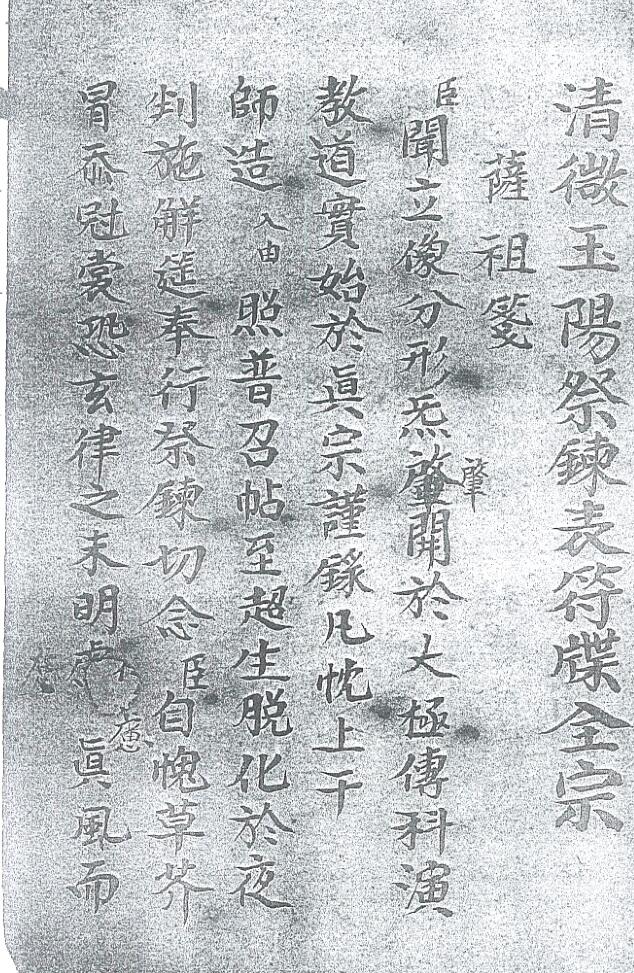 清微玉陽祭鍊表符牒全宗
薩祖箋
臣聞立像分形炁肇開於太極傳科演
肇
教道實始於眞宗謹錄凡忱上干
師造入由照普召帖至超生脱化於夜
刲施觧筵奉行祭鍊切念臣自愧草芥
冒忝冠裳恐玄律之未明 眞風而